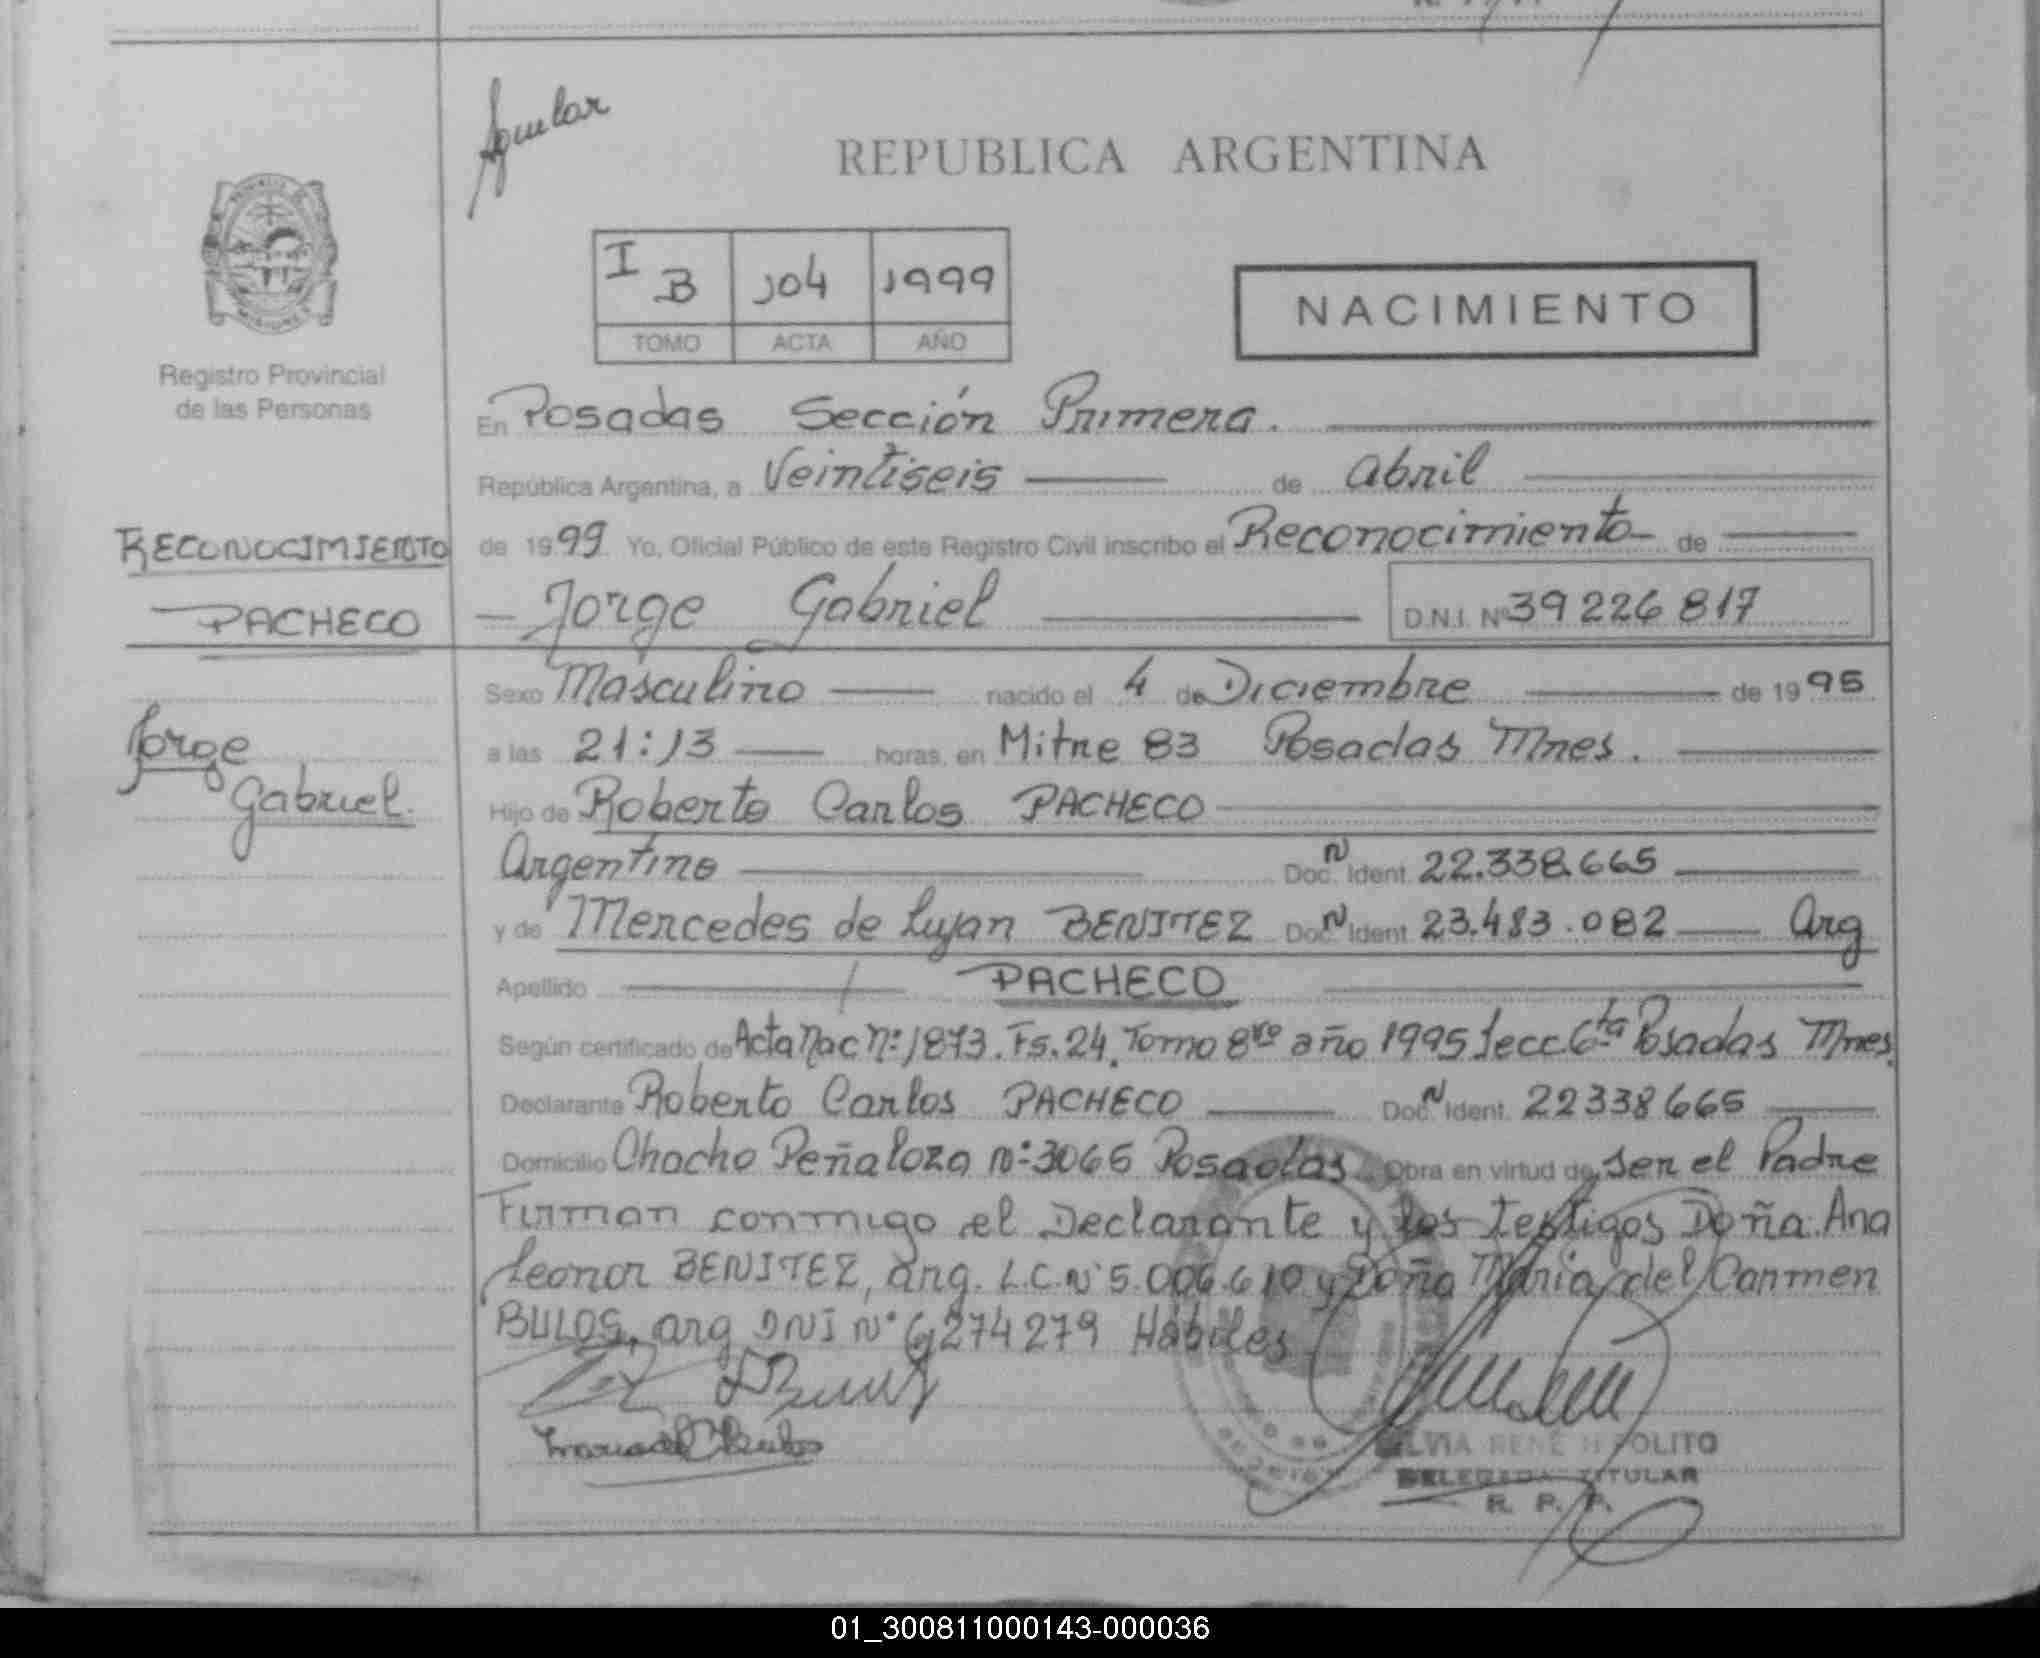 Aguilar
REPUBLICA ARGENTINA
I B 104 1999
TOMO ACTA AÑO
NACIMIENTO
Registro Provincial
de las Personas
En Posadas Sección Primera.
República Argentina, a Veintiseis de abril
RECONOCIMIENTO
de 1999 Yo, Oficial Público de este Registro Civil inscribo el Reconocimiento de
PACHECO
Jorge Gabriel D.N.I. Nº 39226817
Sexo Masculino nacido el 4 de Diciembre de 1995
Jorge
Gabriel.
a las 21:13 horas, en Mitre 83 Posadas Mnes.
Hijo de Roberto Carlos PACHECO
Argentino Doc. N Ident. 22.338.665
y de Mercedes de Lujan BENITEZ Doc. N Ident. 23.483.082 Arg
Apellido PACHECO
Según certificado de Acta Nac Nº 1873. Fs. 24. Tomo 8vo año 1995 Secc 6ta Posadas Mnes.
Declarante Roberto Carlos PACHECO Doc. N Ident. 22338665
Domicilio Chacho Peñaloza Nº 3065 Posadas Obra en virtud de ser el Padre
Firman conmigo el Declarante y los testigos Doña Ana
Leonor BENITEZ, arg. L.C. Nº 5.006.610 y Doña Maria del Carmen
BULOS, arg DNI Nº 6274279 Hábiles
RENE HIPOLITO
DELEGADA TITULAR
R. P. P.
01_300811000143-000036